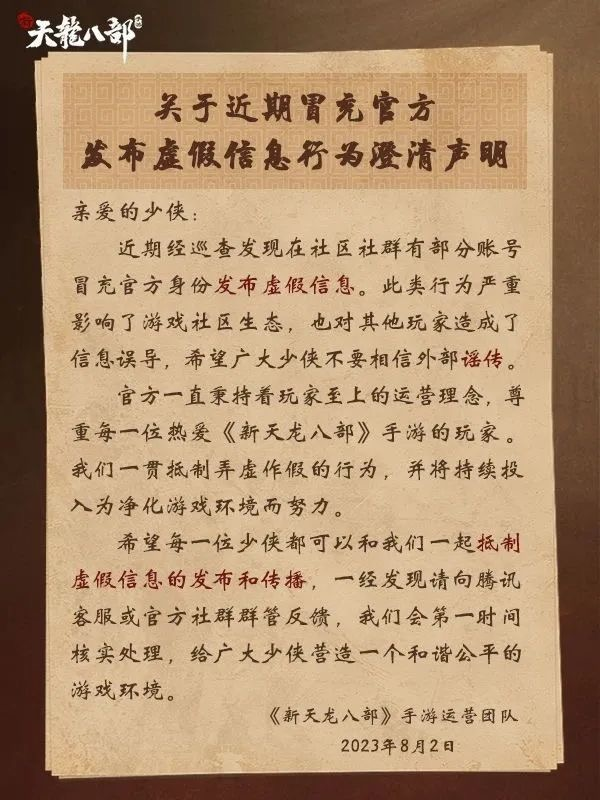 新天龍八部手游
关于近期冒充官方
发布虚假信息行为澄清声明
亲爱的少侠：
近期经巡查发现在社区社群有部分账号
冒充官方身份发布虚假信息。此类行为严重
影响了游戏社区生态，也对其他玩家造成了
信息误导，希望广大少侠不要相信外部谣传。
官方一直秉持着玩家至上的运营理念，尊
重每一位热爱《新天龙八部》手游的玩家。
我们一贯抵制弄虚作假的行为，并将持续投
入为净化游戏环境而努力。
希望每一位少侠都可以和我们一起抵制
虚假信息的发布和传播，一经发现请向腾讯
客服或官方社群群管反馈，我们会第一时间
核实处理，给广大少侠营造一个和谐公平的
游戏环境。
《新天龙八部》手游运营团队
2023年8月2日